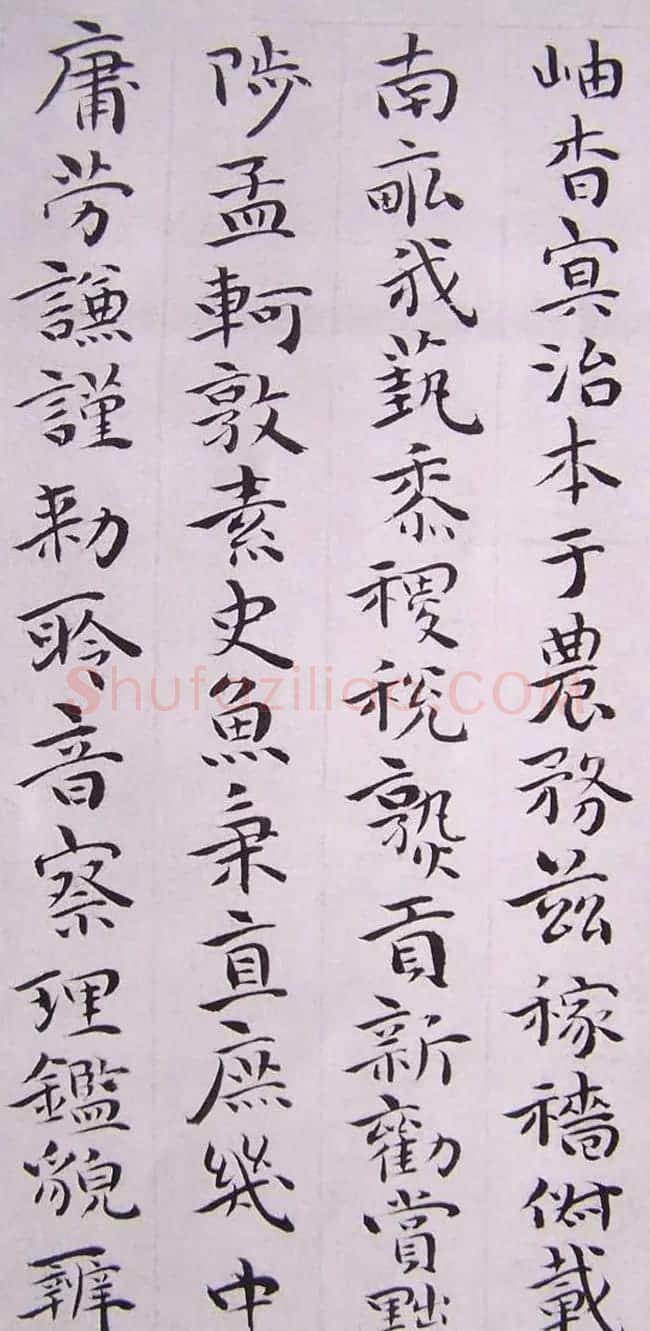 岫杳冥治本于農務茲稼穡俶載
南畝我藝黍稷稅熟貢新勸賞黜
陟孟軻敦素史魚秉直庶幾中
庸勞謙謹勑聆音察理鑑貌辨
Shufaziliao.COM